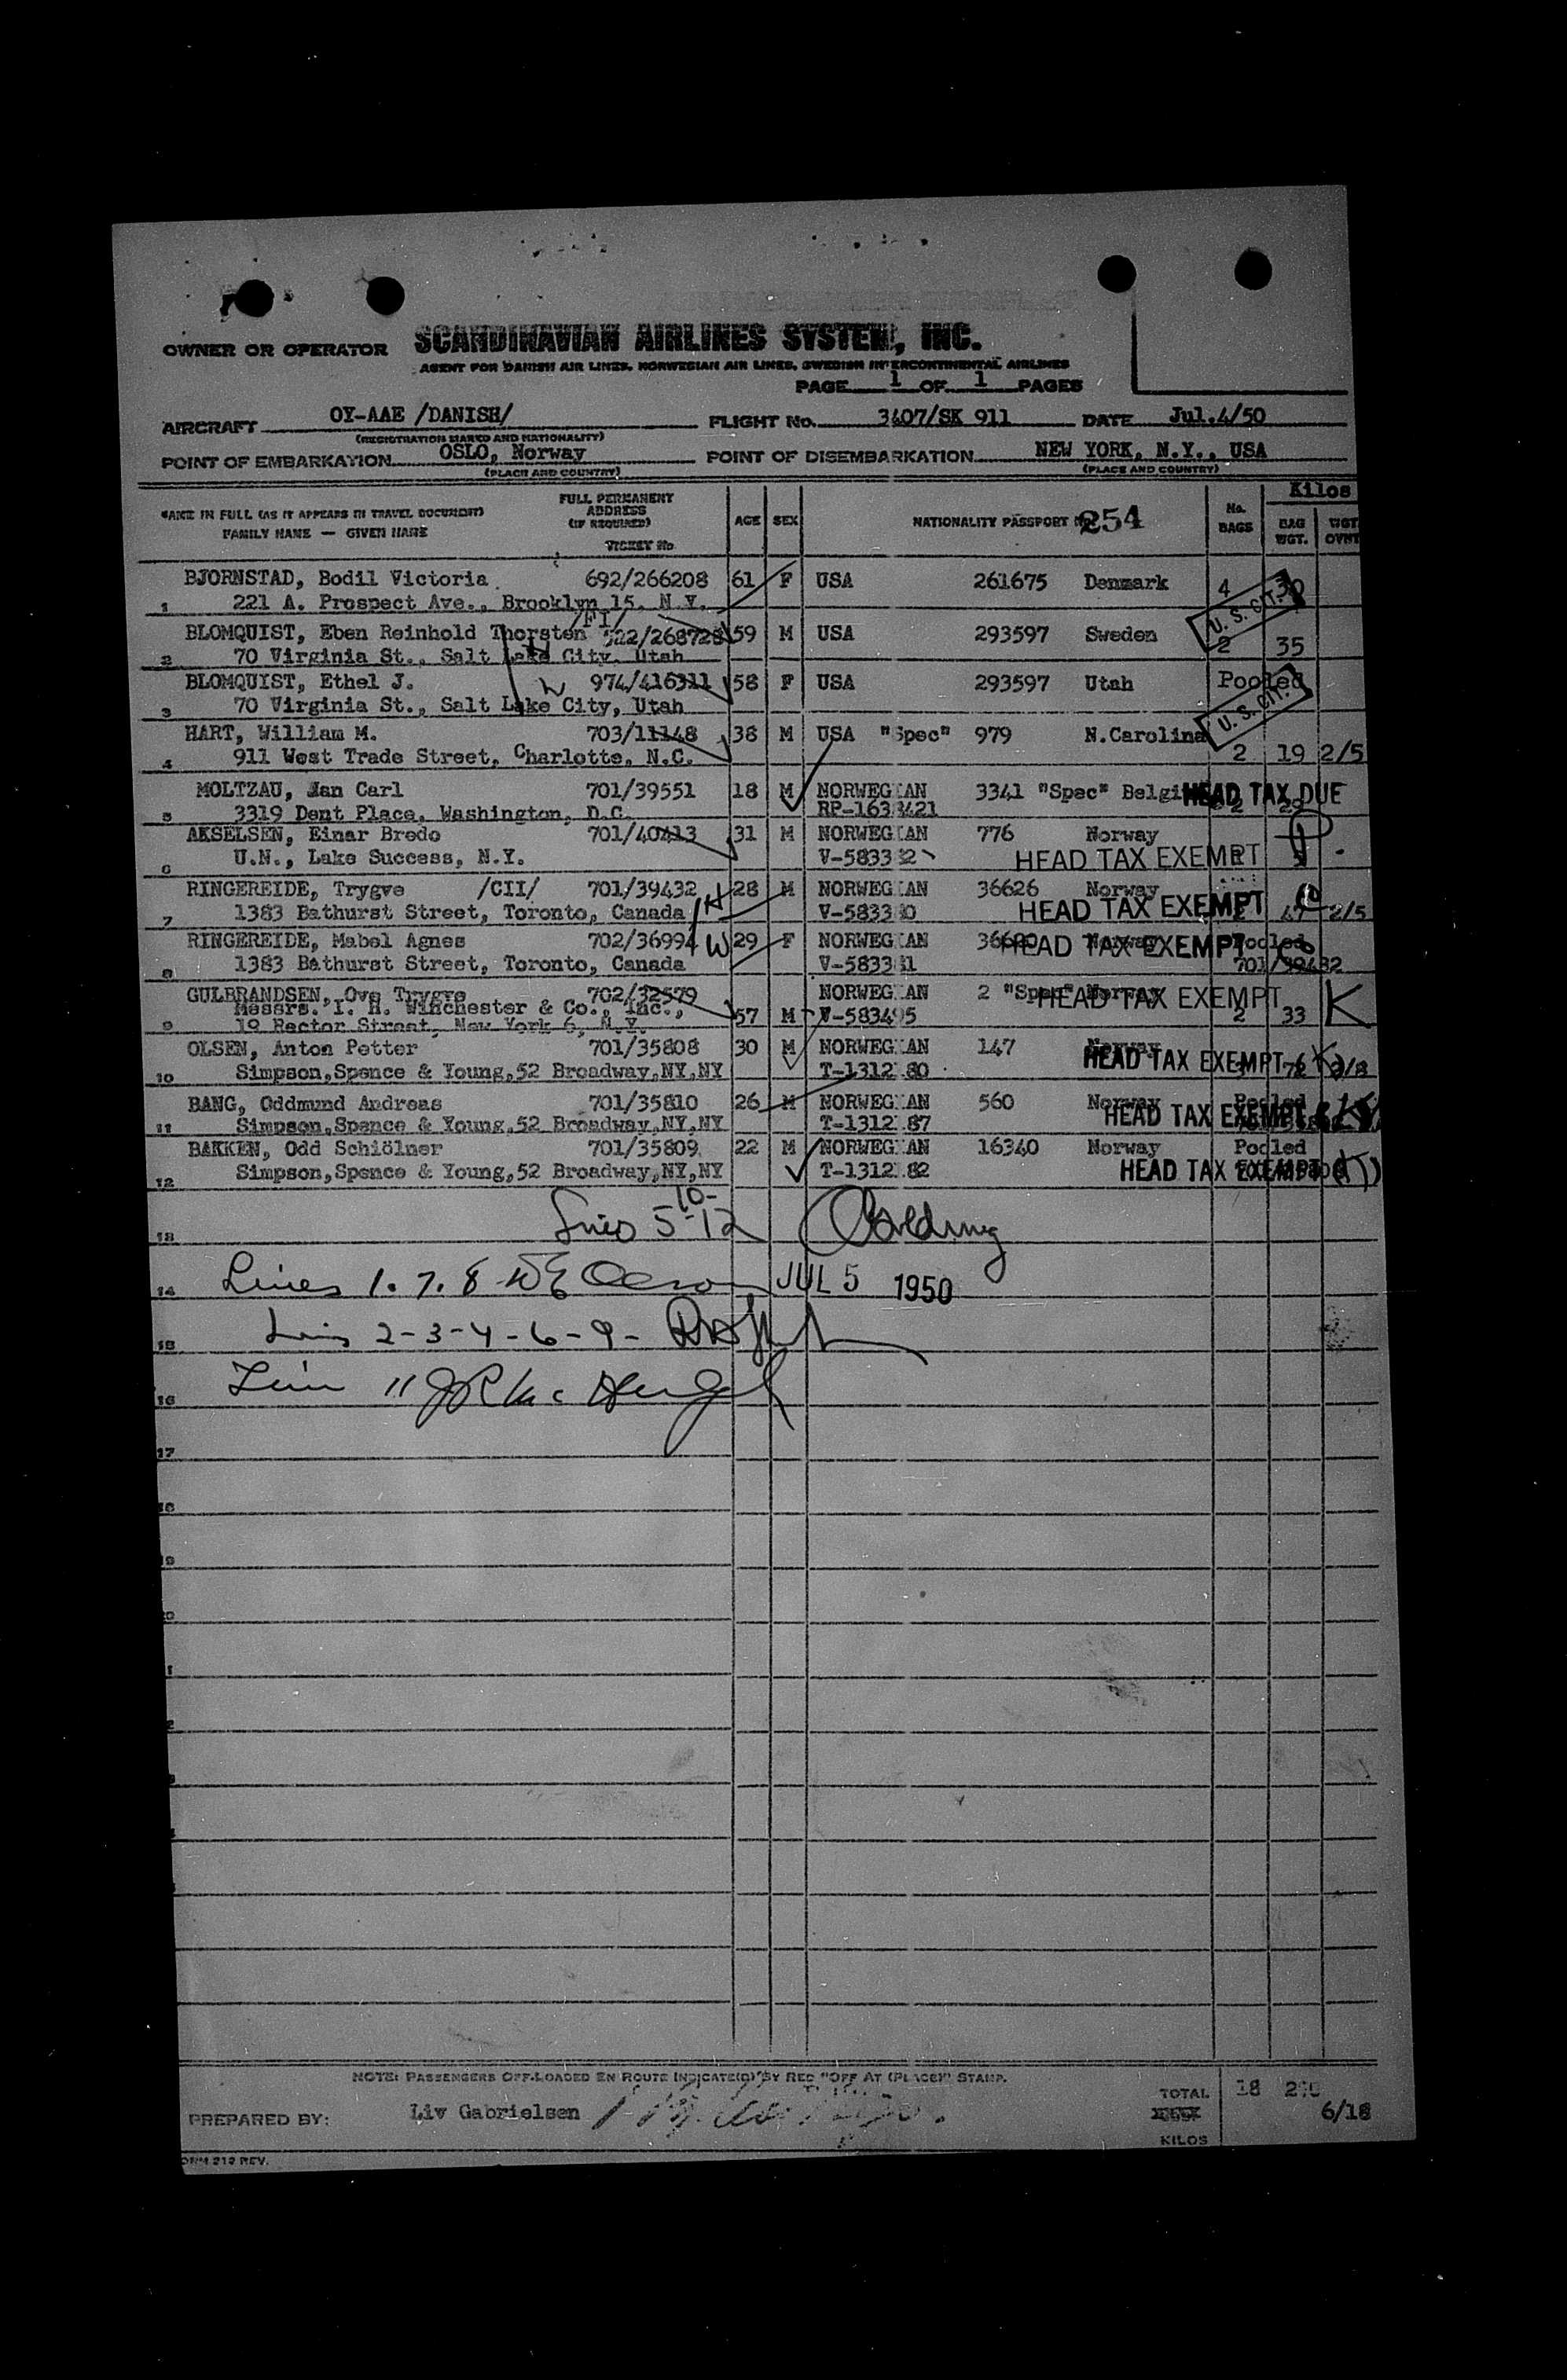 OWNER OR OPERATOR SCANDINAVIAN AIRLINES SYSTEM, INC.
AGENT FOR DANISH AIR LINES, NORWEGIAN AIR LINES, SWEDISH INTERCONTINENTAL AIRLINES
PAGE 1 OF 1 PAGES
AIRCRAFT OY-AAE /DANISH/ FLIGHT No. 3407/SK 911 DATE Jul.4/50
(REGISTRATION MARKS AND NATIONALITY)
POINT OF EMBARKATION OSLO, Norway POINT OF DISEMBARKATION NEW YORK, N.Y., USA
(PLACE AND COUNTRY) (PLACE AND COUNTRY)
NAME IN FULL (AS IT APPEARS IN TRAVEL DOCUMENT)
FAMILY NAME — GIVEN NAME
FULL PERMANENT ADDRESS (IF REQUIRED)
TICKET No
AGE SEX NATIONALITY PASSPORT 254 No. BAGS Kilos BAG WGT. WGT OVWT
BJORNSTAD, Bodil Victoria 692/266208 61 F USA 261675 Denmark 4 30
1 221 A. Prospect Ave., Brooklyn 15, N.Y. U.S. CIT.
/FI/
BLOMQUIST, Eben Reinhold Thorsten 522/268728 59 M USA 293597 Sweden 2 35
2 70 Virginia St., Salt Lake City, Utah
BLOMQUIST, Ethel J. W 974/416311 58 F USA 293597 Utah Pooled
3 70 Virginia St., Salt Lake City, Utah U.S. CIT.
HART, William M. 703/11148 38 M USA "Spec" 979 N.Carolina
4 911 West Trade Street, Charlotte, N.C. 2 19 2/5
MOLTZAU, Jan Carl 701/39551 18 M NORWEGIAN 3341 "Spec" HEAD TAX DUE
5 3319 Dent Place, Washington, D.C. RP-163 421 2
AKSELSEN, Einar Bredo 701/40413 31 M NORWEGIAN 776 Norway
6 U.N., Lake Success, N.Y. HEAD TAX EXEMPT
RINGEREIDE, Trygve /CII/ 701/39432 H 28 M NORWEGIAN 36626 Norway
7 1383 Bathurst Street, Toronto, Canada HEAD TAX EXEMPT 47 2/5
RINGEREIDE, Mabel Agnes 702/36994 W 29 F NORWEGIAN HEAD TAX EXEMPT Pooled
8 1383 Bathurst Street, Toronto, Canada 701/39432
GULBRANDSEN, Ove Trygve 702/32579 NORWEGIAN 2 "Spec" Norway
Messrs. I. H. Winchester & Co., Inc., HEAD TAX EXEMPT K
9 19 Rector Street, New York 6, N.Y. 57 M 2 33
OLSEN, Anton Petter 701/35808 30 M NORWEGIAN 147 Norway
10 Simpson,Spence & Young,52 Broadway,NY,NY T-1312 80 HEAD TAX EXEMPT
BANG, Oddmund Andreas 701/35810 26 M NORWEGIAN 560 Norway Pooled
11 Simpson,Spence & Young,52 Broadway,NY,NY T-1312 87 HEAD TAX EXEMPT
BAKKEN, Odd Schiölner 701/35809 22 M NORWEGIAN 16340 Norway Pooled
12 Simpson,Spence & Young,52 Broadway,NY,NY T-1312 82 HEAD TAX EXEMPT
13 Lines 5-10-12
14 Lines 1. 7. 8 JUL 5 1950
15 Lines 2-3-4-6-9-
16 Line 11
17
NOTE: PASSENGERS OFF-LOADED EN ROUTE INDICATE(D) BY RED "OFF AT (PLACE)" STAMP.
PREPARED BY: Liv Gabrielsen
TOTAL KILOS 18 6/18
FORM 212 REV.